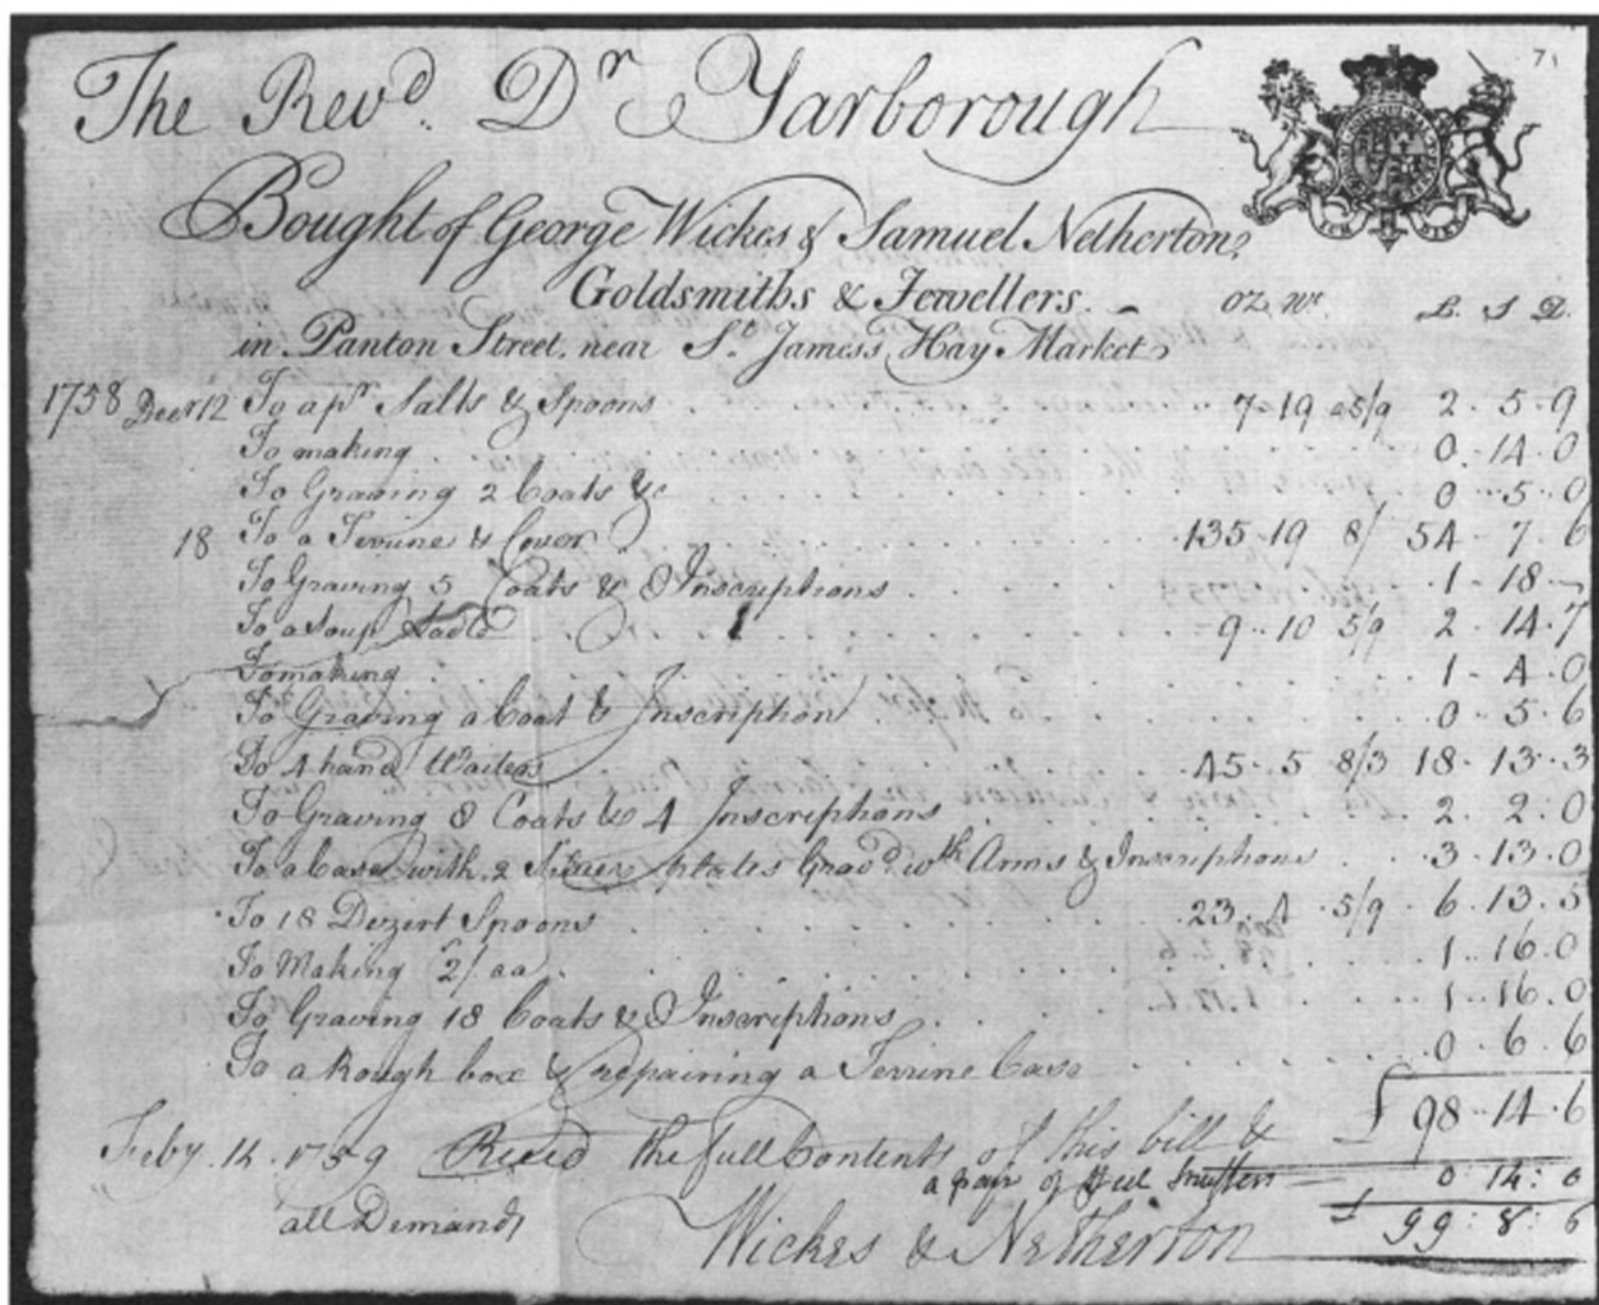 71
The Revd. Dr Yarborough
Bought of George Wickes & Samuel Netherton,
Goldsmiths & Jewellers.
oz. wt. L. S D.
in Panton Street, near St. James's Hay Market
1758 Decr 12 To a pr Salts & Spoons 7-19 a5/9 2-5-9
To making 0-14-0
To Graving 2 Coats &c 0-5-0
18 To a Terrine & Cover 135-19 8/ 54-7-6
To Graving 5 Coats & 8 Inscriptions 1-18-
To a Soup Ladle 9-10 5/9 2-14-7
To making 1-4-0
To Graving a Coat & Inscription 0-5-6
To 4 hand Waiters 45-5 8/3 18-13-3
To Graving 8 Coats & 4 Inscriptions 2.2.0
To a Case with 2 plates Gravd wth Arms & Inscriptions 3.13.0
To 18 Dezert Spoons 23.4 5/9 6.13.5
To Making 2/ aa 1.16.0
To Graving 18 Coats & Inscriptions 1.16.0
To a Rough box & repairing a Terrine Case 0.6.6
£ 98-14-6
Feby. 14. 1759 Reced the full Contents of this bill &
a pair of Steel Snuffers 0:14:0
all Demands Wickes & Netherton £ 99:8:6